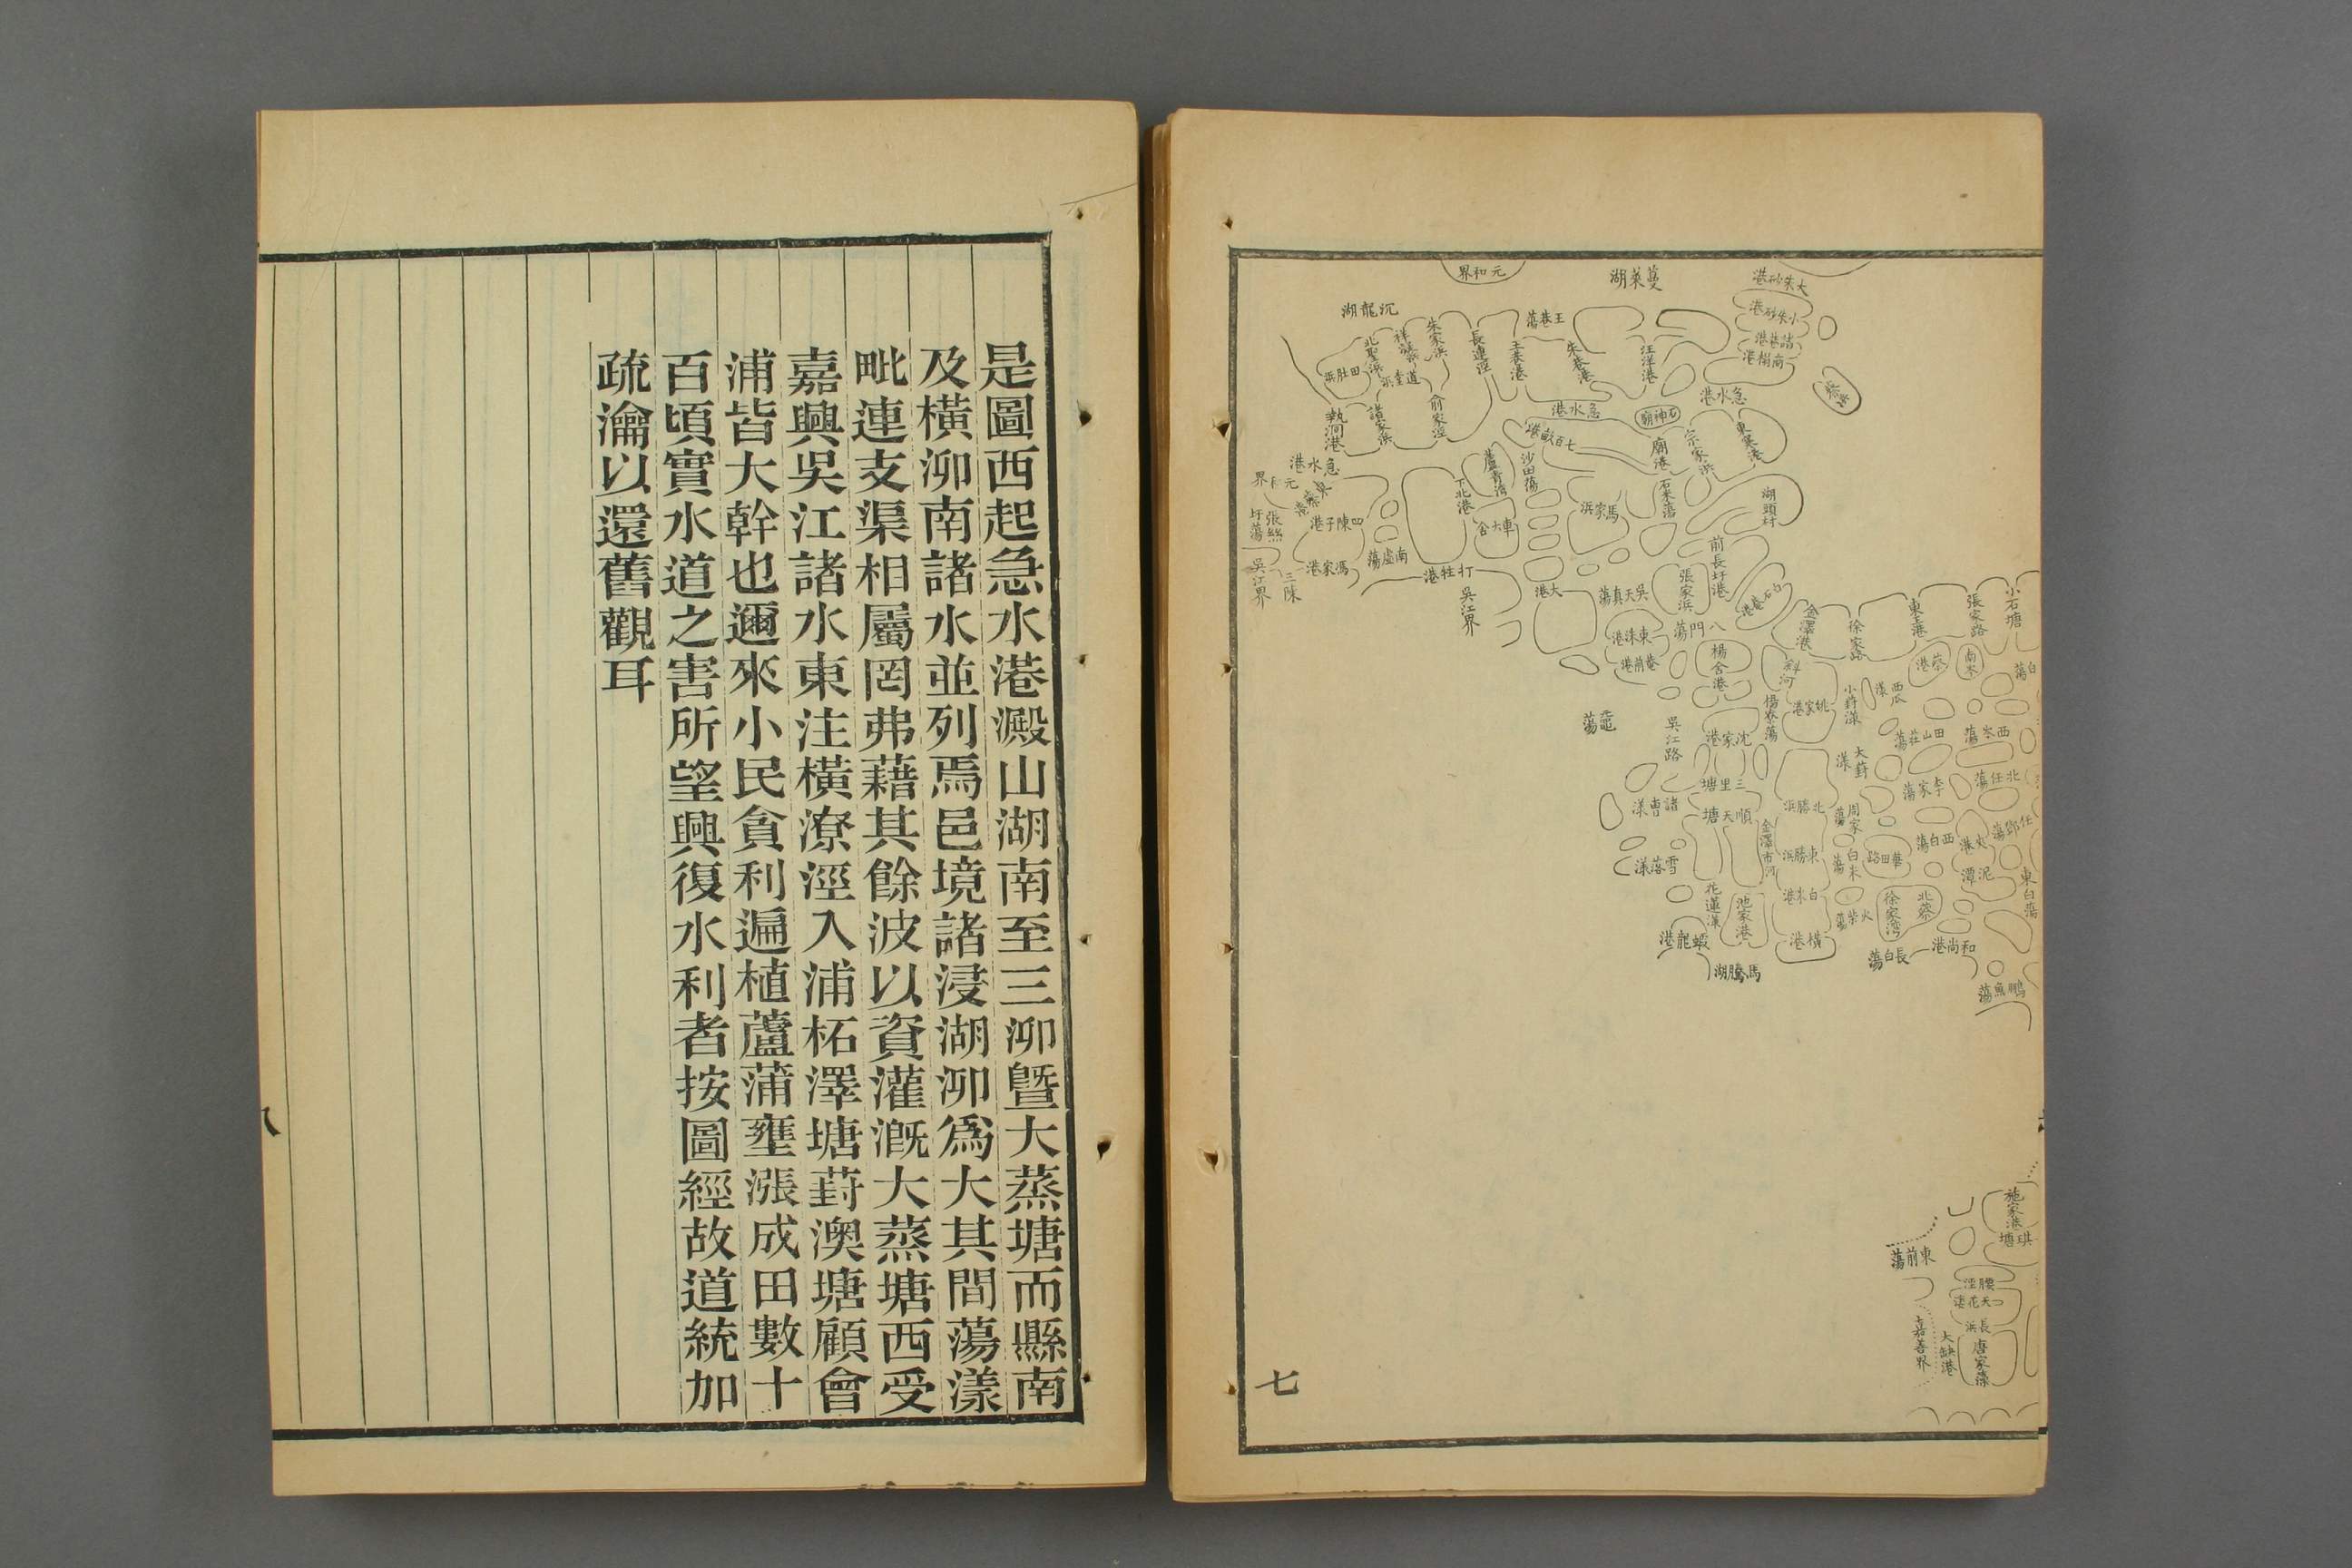 元和界
蔓萊湖
大朱砂港
小朱砂港
諸巷港
商榻港
沉龍湖
王巷蕩
朱家浜
祥誠浜
北聖浜
田肚浜
道堂浜
長連涇
王巷港
朱巷港
汪洋港
急水港
急水港
石神廟
俞家涇
諸家浜
七百畝蕩
廟港
宗家浜
東寞港
急水港
元和界
蘆青湾
沙田蕩
下北港
石米蕩
湖頭村
張絲圩蕩
四陳子港
車大舍
馬家浜
南虛蕩
馮家港
打牲港
吳江界
三陳
吳江界
大港
前長圩港
張家浜
白石菴港
吳天真蕩
八門蕩
東洙港
巷前港
楊舍港
金澤港
徐家路
東王港
張家路
小石塘
蔡港
南岑
斜河
姚家港
小葑漾
西瓜漾
楊寮蕩
黿蕩
吳江路
沈家港
田山莊蕩
西岑蕩
大葑漾
三里塘
李家蕩
北任蕩
諸曹漾
順天塘
北勝浜
周家蕩
任鄧蕩
金澤市河
東勝浜
西白蕩
火港
雪落漾
白米蕩
華田路
泥潭
白米港
東白蕩
花蓮漾
池家港
火柴蕩
徐家湾
北蔡
蝦龍港
橫港
和尚港
長白蕩
馬騰湖
鵬魚蕩
施家港
珙塘
東前蕩
腰涇
天花蕩
長浜
嘉善界
大缺港
唐家蕩
七
是圖西起急水港澱山湖南至三泖曁大蒸塘而縣南
及橫泖南諸水並列焉邑境諸浸湖泖爲大其間蕩漾
毗連支渠相屬罔弗藉其餘波以資灌漑大蒸塘西受
嘉興吳江諸水東注橫潦涇入浦柘澤塘葑澳塘顧會
浦皆大幹也邇來小民貪利遍植蘆蒲壅漲成田數十
百頃實水道之害所望興復水利者按圖經故道統加
疏瀹以還舊觀耳
八